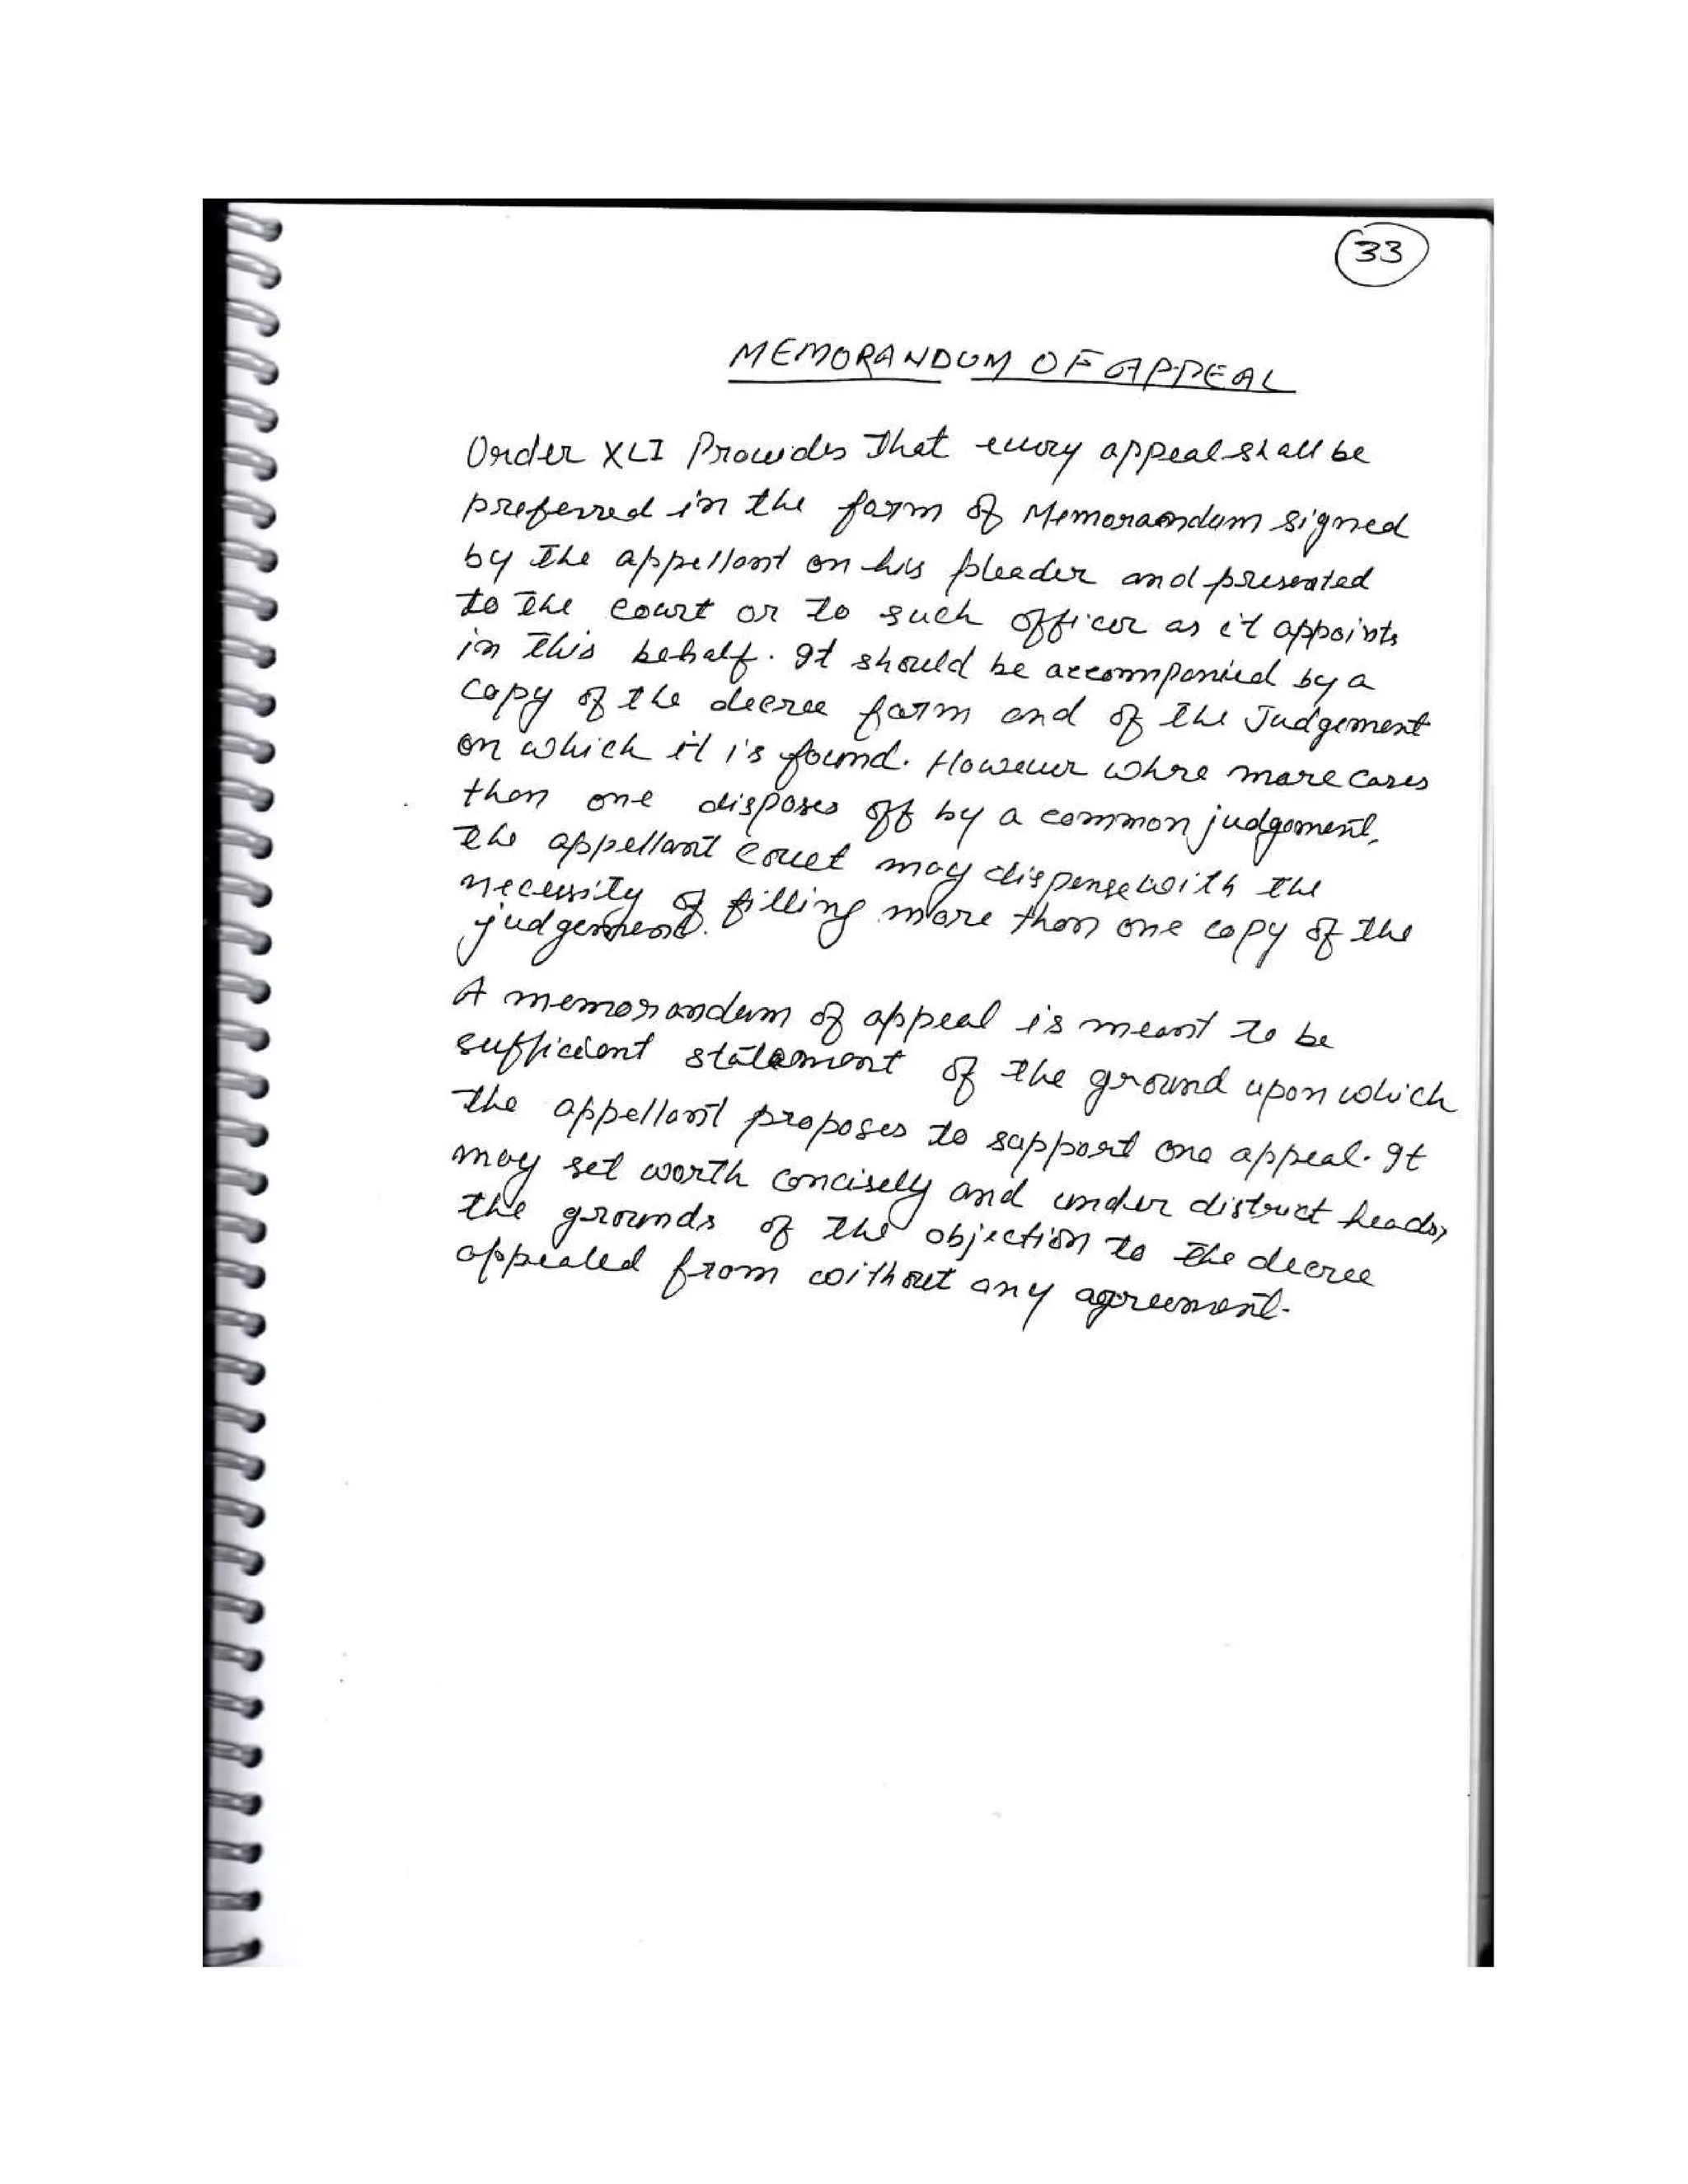 33
MEMORANDUM OF APPEAL
Order XLI Provides That every appeal shall be
preferred in the form of Memoraandum signed
by the appellant on his pleader and presented
to the court or to such officer as it appoints
in this behalf. It should be accompanied by a
copy of the decree form and of the Judgement
on which it is found. However whre more cases
than one disposes off by a common judgement,
the appellant court may dispense with the
necessity of filling more than one copy of the
judgement.
A memorandum of appeal is meant to be
sufficient statement of the ground upon which
the appellant proposes to support one appeal. It
may set worth concisely and under district heads,
the grounds of the objection to the decree
appealed from without any agreement.